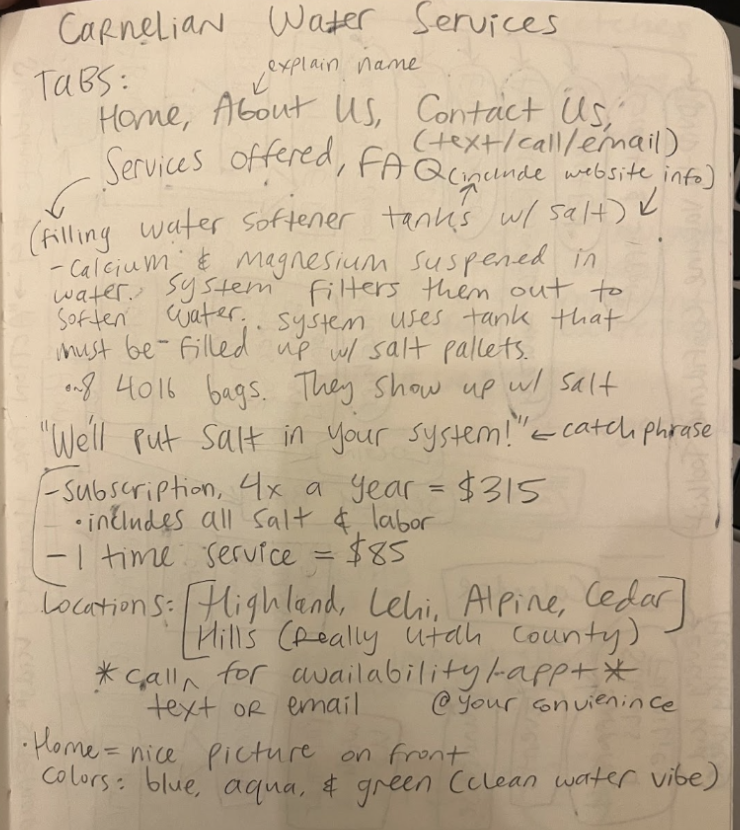 Carnelian Water Services
explain name
TABS:
Home, About Us, Contact Us,
(text/call/email)
Services offered, FAQ (include website info)
(filling water softener tanks w/ salt)
- Calcium & magnesium suspened in
water. System filters them out to
soften water. System uses tank that
must be filled up w/ salt pallets.
8 40lb bags. They show up w/ salt
"We'll put salt in your system!" ← catch phrase
- subscription, 4x a year = $315
• includes all salt & labor
- 1 time service = $85
Locations: [Highland, Lehi, Alpine, Cedar
Hills (Really Utah County)]
* call for availability/appt *
text OR email @ your convienince
• Home = nice picture on front
colors: blue, aqua, & green (clean water vibe)